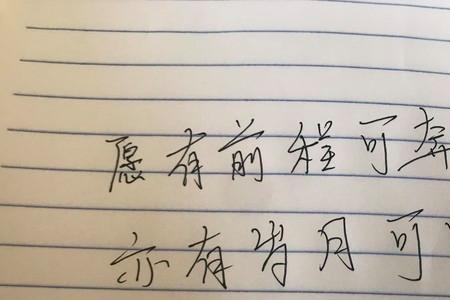 愿有前程可奔
亦有岁月可